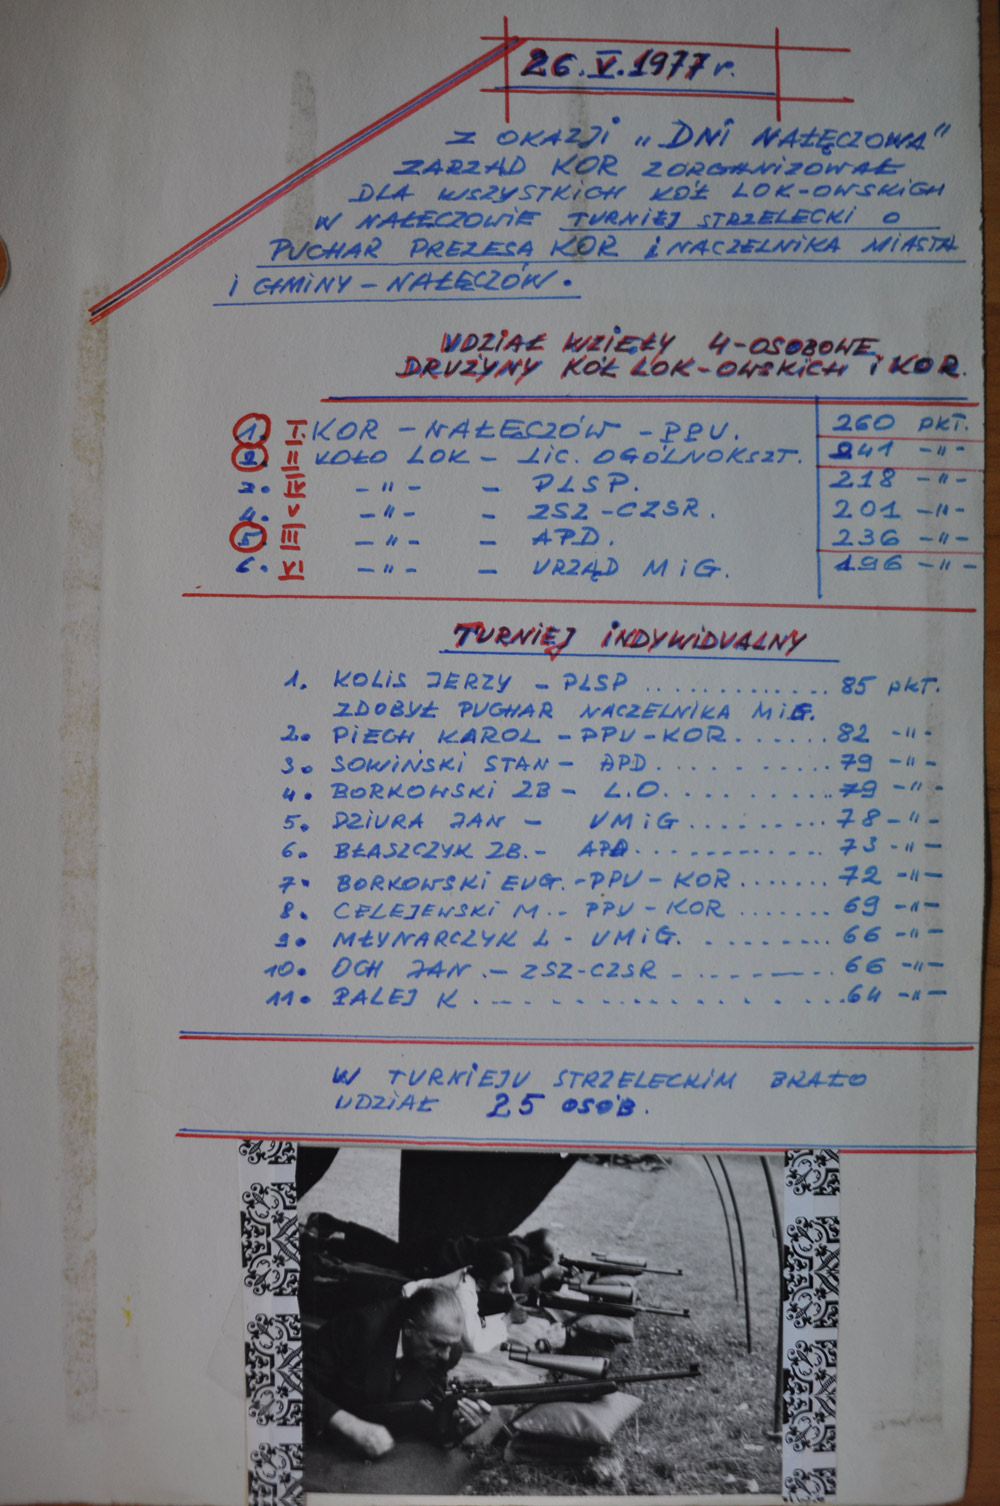 26.V.1977 r.
Z OKAZJI „DNI NAŁĘCZOWA"
ZARZĄD KOR ZORGANIZOWAŁ
DLA WSZYSTKICH KÓŁ LOK-OWSKICH
W NAŁĘCZOWIE TURNIEJ STRZELECKI O
PUCHAR PREZESA KOR i NACZELNIKA MIASTA
I GMINY - NAŁĘCZÓW.
UDZIAŁ WZIĘŁY 4-OSOBOWE
DRUŻYNY KÓŁ LOK-OWSKICH i KOR.
1. I. KOR - NAŁĘCZÓW - PPU. 260 PKT.
2. II KOŁO LOK - LIC. OGÓLNOKSZT. 241 -"-
3. IV -"- - PLSP. 218 -"-
4. V -"- - ZSZ-CZSR. 201 -"-
5. III -"- - APD. 236 -"-
6. VI -"- - URZĄD MiG. 196 -"-
TURNIEJ INDYWIDUALNY
1. KOLIS JERZY - PLSP ............. 85 pKT.
ZDOBYŁ PUCHAR NACZELNIKA MiG.
2. PIECH KAROL - PPU-KOR ...... 82 -"-
3. SOWIŃSKI STAN - APD .......... 79 -"-
4. BORKOWSKI ZB - L.O. .......... 79 -"-
5. DZIURA JAN - UMiG ......... 78 -"-
6. BŁASZCZYK ZB. - APD .......... 73 -"-
7. BORKOWSKI EUG. - PPU - KOR ....... 72 -"-
8. CELEJEWSKI M. - PPU - KOR ....... 69 -"-
9. MŁYNARCZYK L - UMiG. ......... 66 -"-
10. OCH JAN. - ZSZ-CZSR ......... 66 -"-
11. PALEJ K .................... 64 -"-
W TURNIEJU STRZELECKIM BRAŁO
UDZIAŁ 25 OSÓB.